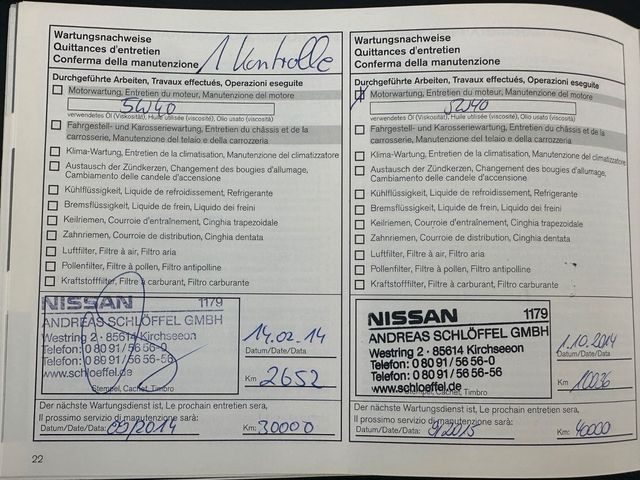 Wartungsnachweise
Quittances d'entretien
Conferma della manutenzione
1 Kontrolle
Durchgeführte Arbeiten, Travaux effectués, Operazioni eseguite
Motorwartung, Entretien du moteur, Manutenzione del motore
5W40
verwendetes Öl (Viskosität), Huile utilisée (viscosité), Olio usato (viscosità)
Fahrgestell- und Karosseriewartung, Entretien du châssis et de la
carrosserie, Manutenzione del telaio e della carrozzeria
Klima-Wartung, Entretien de la climatisation, Manutenzione del climatizzatore
Austausch der Zündkerzen, Changement des bougies d'allumage,
Cambiamento delle candele d'accensione
Kühlflüssigkeit, Liquide de refroidissement, Refrigerante
Bremsflüssigkeit, Liquide de frein, Liquido dei freini
Keilriemen, Courroie d'entraînement, Cinghia trapezoidale
Zahnriemen, Courroie de distribution, Cinghia dentata
Luftfilter, Filtre à air, Filtro aria
Pollenfilter, Filtre à pollen, Filtro antipolline
Kraftstofffilter, Filtre à carburant, Filtro carburante
NISSAN 1179
ANDREAS SCHLÖFFEL GMBH
Westring 2 · 85614 Kirchseeon
Telefon: 0 80 91/56 56-0
Telefon: 0 80 91/56 56-56
www.schloeffel.de
Stempel, Cachet, Timbro
14.02.14
Datum/Date/Data
Km 2652
Der nächste Wartungsdienst ist, Le prochain entretien sera,
Il prossimo servizio di manutenzione sarà:
Datum/Date/Data: 09/2014 Km: 30000
22
Wartungsnachweise
Quittances d'entretien
Conferma della manutenzione
Durchgeführte Arbeiten, Travaux effectués, Operazioni eseguite
Motorwartung, Entretien du moteur, Manutenzione del motore
5W40
verwendetes Öl (Viskosität), Huile utilisée (viscosité), Olio usato (viscosità)
Fahrgestell- und Karosseriewartung, Entretien du châssis et de la
carrosserie, Manutenzione del telaio e della carrozzeria
Klima-Wartung, Entretien de la climatisation, Manutenzione del climatizzatore
Austausch der Zündkerzen, Changement des bougies d'allumage,
Cambiamento delle candele d'accensione
Kühlflüssigkeit, Liquide de refroidissement, Refrigerante
Bremsflüssigkeit, Liquide de frein, Liquido dei freini
Keilriemen, Courroie d'entraînement, Cinghia trapezoidale
Zahnriemen, Courroie de distribution, Cinghia dentata
Luftfilter, Filtre à air, Filtro aria
Pollenfilter, Filtre à pollen, Filtro antipolline
Kraftstofffilter, Filtre à carburant, Filtro carburante
NISSAN 1179
ANDREAS SCHLÖFFEL GMBH
Westring 2 · 85614 Kirchseeon
Telefon: 0 80 91/56 56-0
Telefon: 0 80 91/56 56-56
www.schloeffel.de
Stempel, Cachet, Timbro
1.10.2014
Datum/Date/Data
Km 10036
Der nächste Wartungsdienst ist, Le prochain entretien sera,
Il prossimo servizio di manutenzione sarà:
Datum/Date/Data: 9/2015 Km: 40000